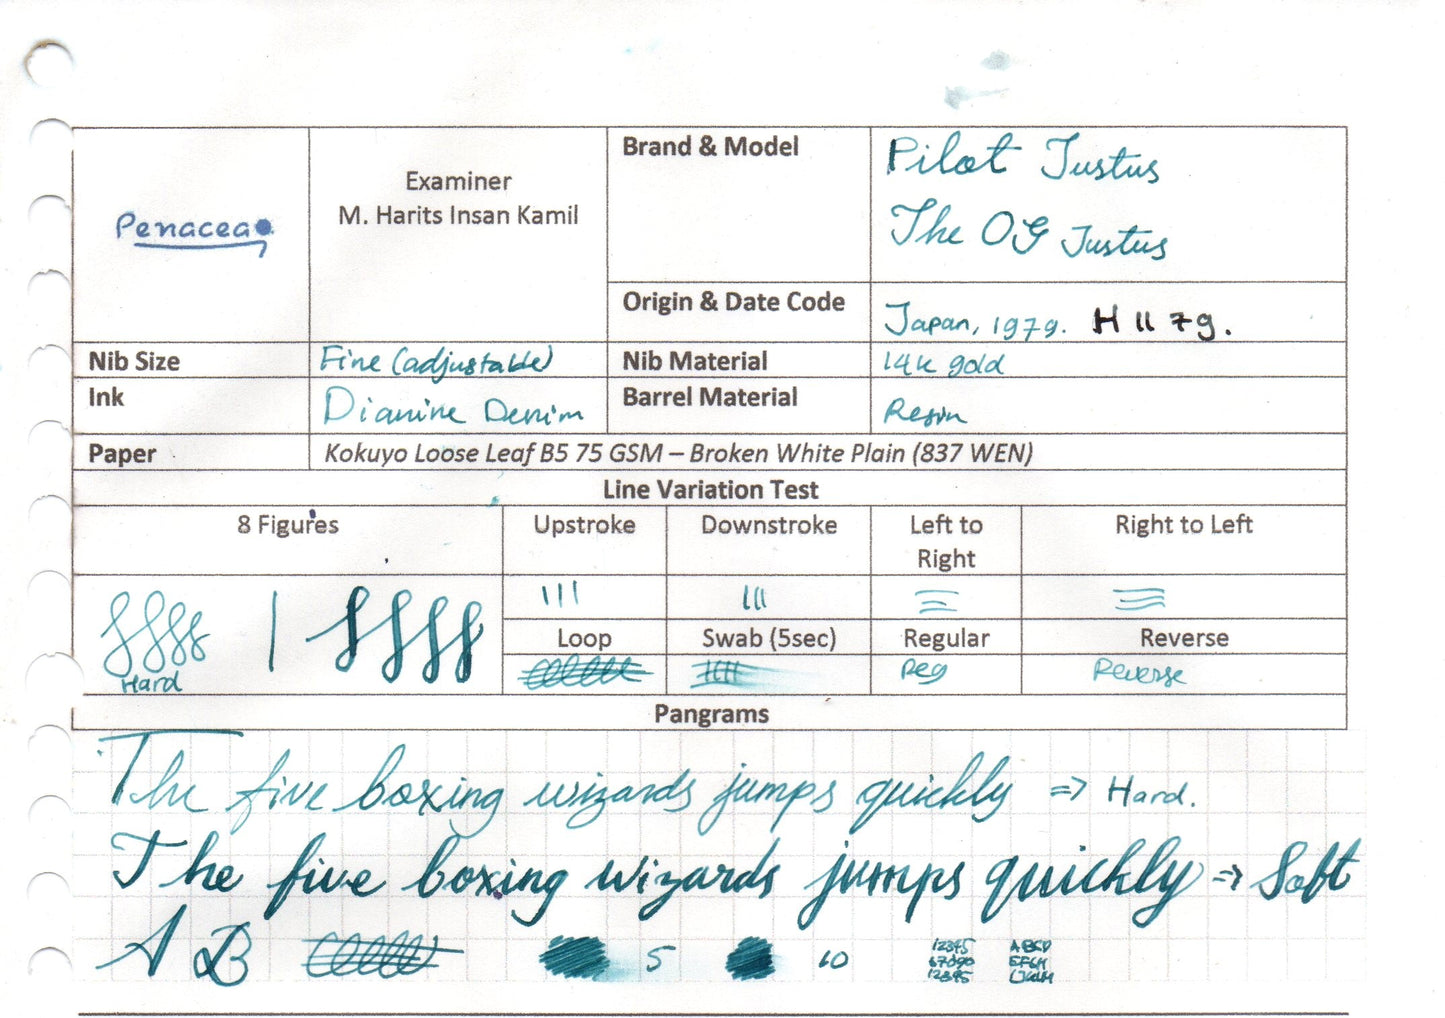 Penacea
Examiner
M. Harits Insan Kamil
Brand & Model
Pilot Justus
The OG Justus
Origin & Date Code
Japan, 1979. H1179.
Nib Size
Fine (adjustable)
Nib Material
14k gold
Ink
Dianine Denim
Barrel Material
Resin
Paper
Kokuyo Loose Leaf B5 75 GSM – Broken White Plain (837 WEN)
Line Variation Test
8 Figures
Upstroke
Downstroke
Left to
Right
Right to Left
Hard
Loop
Swab (5sec)
Regular
Reverse
Reg
Reverse
Pangrams
The five boxing wizards jumps quickly => Hard.
The five boxing wizards jumps quickly => Soft
A B 5 10
12345 ABCD
67890 EFGH
12345